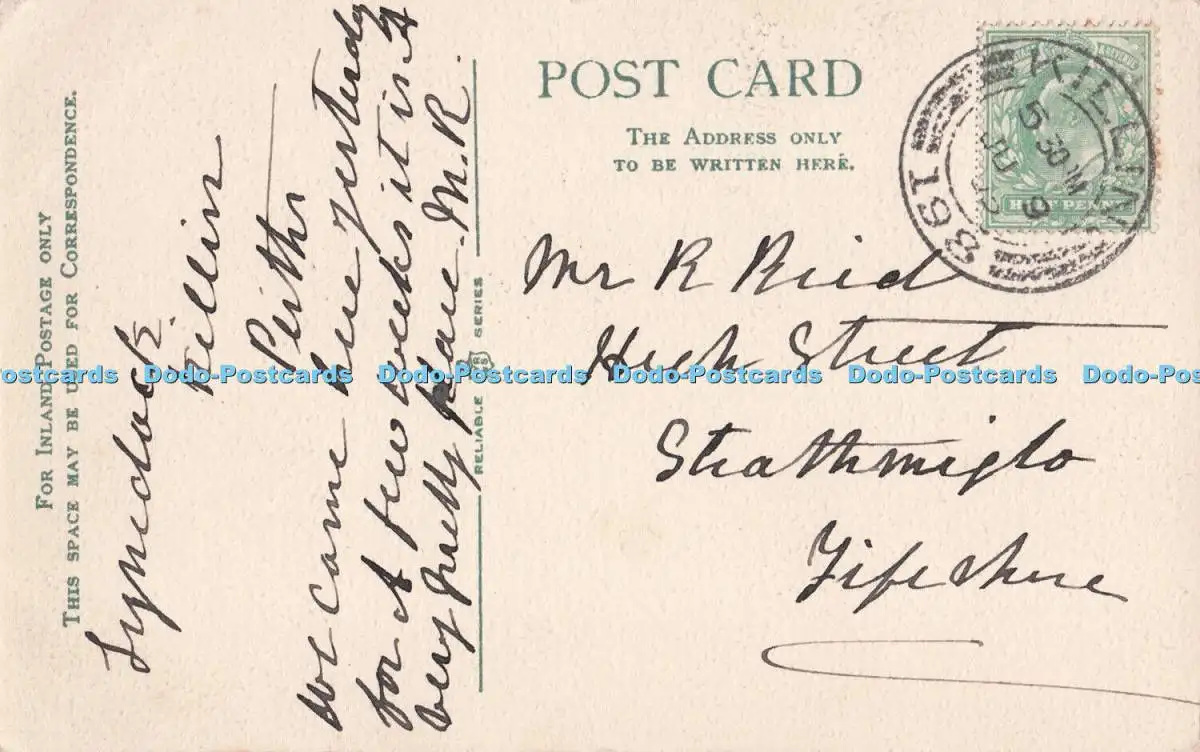 FOR INLAND POSTAGE ONLY
THIS SPACE MAY BE USED FOR CORRESPONDENCE.
Lynedock
Killin
Perths
We came here yesterday
for a few weeks it is a
very pretty place. M.R.
RELIABLE SERIES
POST CARD
THE ADDRESS ONLY
TO BE WRITTEN HERE.
KILLIN
5 30 PM
JU 9
198
HALF PENNY
Mr R Reid
High Street
Strathmiglo
Fifeshire
Dodo-Postcards Dodo-Postcards Dodo-Postcards Dodo-Postcards Dodo-Postcards Dodo-Postcards